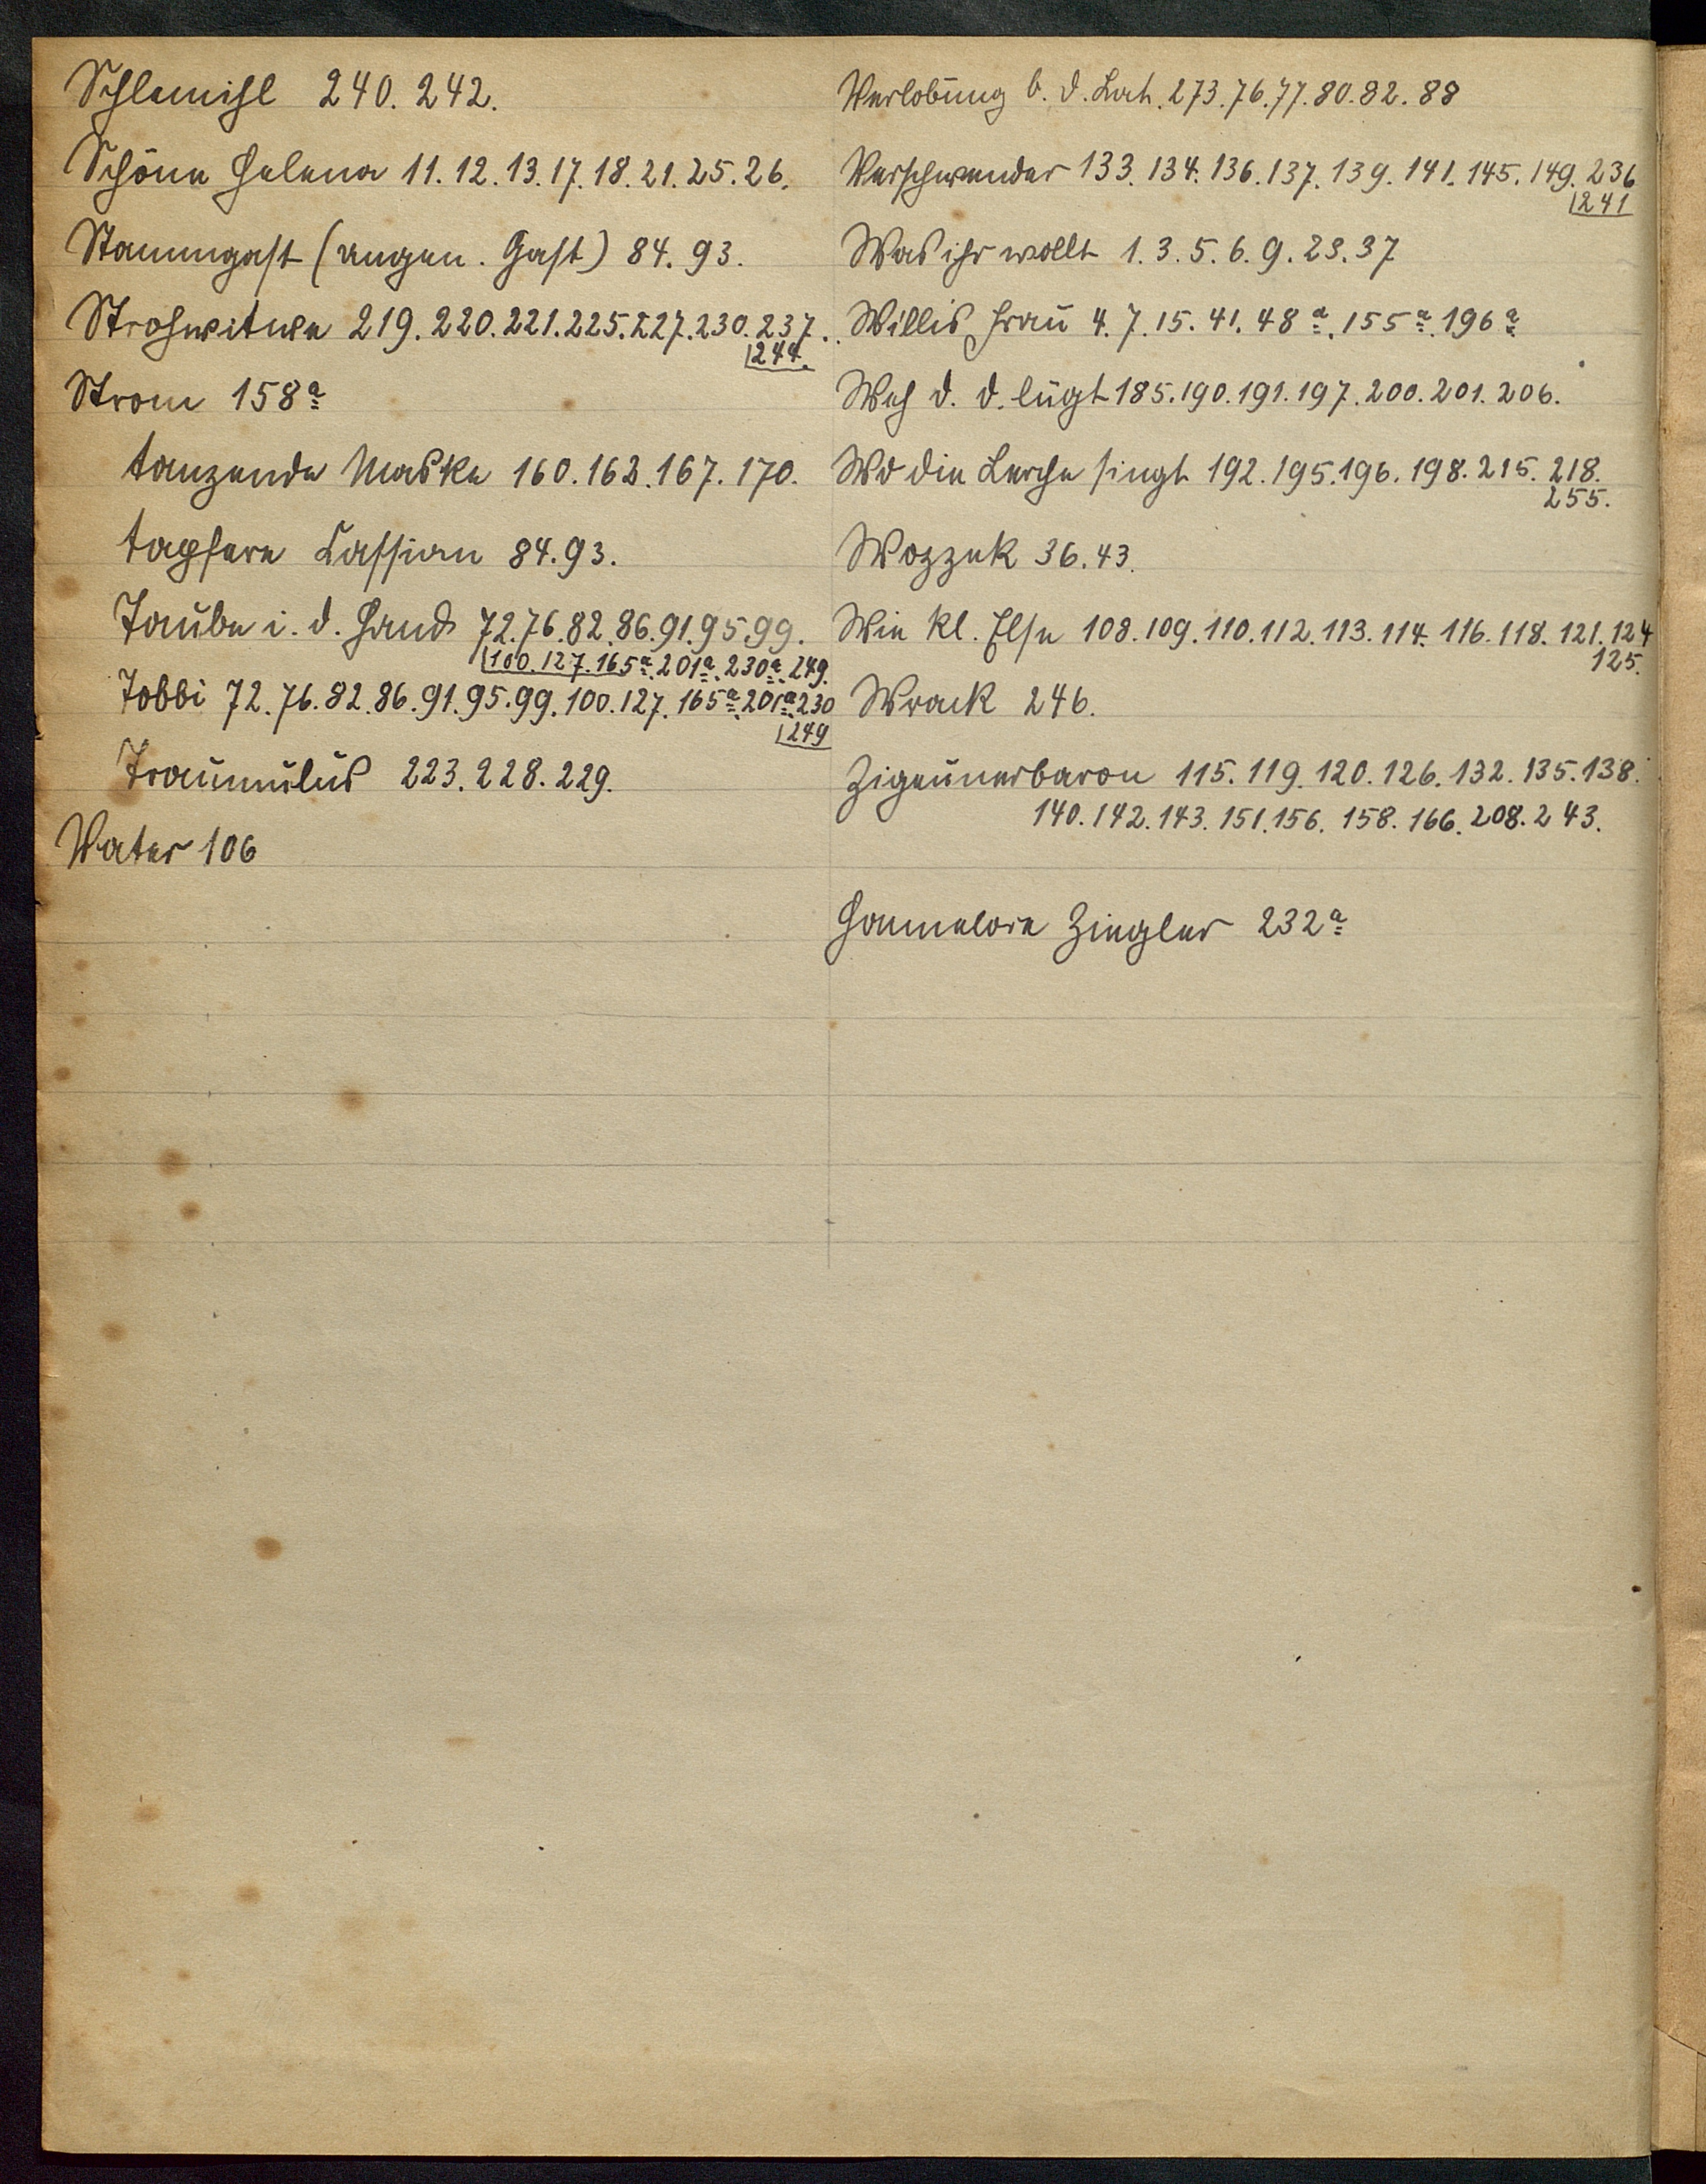 Schlemihl 240. 242.
Schöne Helena 11. 12. 13. 17. 18. 21. 25. 26.
Stammgast (angen. Gast) 84. 93.
Strohwitwe 219. 220. 221. 225. 227. 230. 237.
244.
Strom 158a
tanzende Maske 160. 162. 167. 170.
tapfere Cassian 84. 93.
Taube i. d. Hand 72. 76. 82. 86. 91. 95. 99.
100. 127. 165a. 201a. 230a. 249.
Tobbi 72. 76. 82. 86. 91. 95. 99. 100. 127. 165a. 201a. 230
249
Traumulus 223. 228. 229.
Vater 106
Verlobung b. d. Lat. 273. 76. 77. 80. 82. 88
Verschwender 133. 134. 136. 137. 139. 141. 145. 149. 236
241
Was ihr wollt 1. 3. 5. 6. 9. 23. 37
Willis Frau 4. 7. 15. 41. 48a. 155a. 196a
Weh d. d. lügt 185. 190. 191. 197. 200. 201. 206.
Wo die Lerche singt 192. 195. 196. 198. 215. 218.
255.
Wozzek 36. 43.
Wie kl. Else 108. 109. 110. 112. 113. 114. 116. 118. 121. 124
125.
Wrack 246.
Zigeunerbaron 115. 119. 120. 126. 132. 135. 138.
140. 142. 143. 151. 156. 158. 166. 208. 243.
Hannelore Ziegler 232a